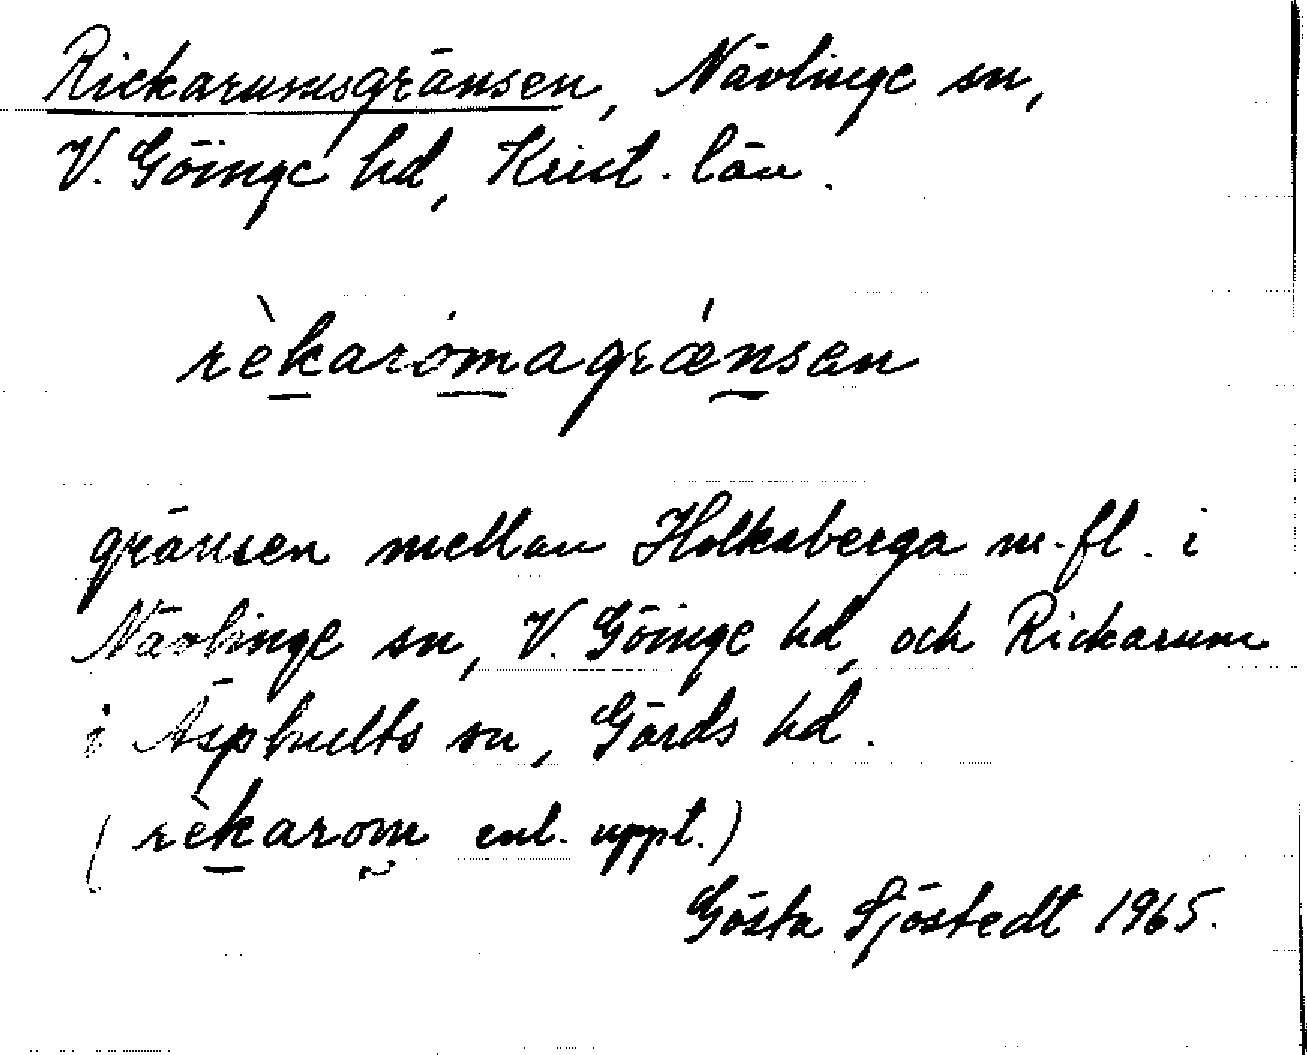 Rickarumsgränsen, Nävlinge sn,
V. Göinge hd, Krist. län.
rèkaròmagrǽnsen
gränsen mellan Holksberga m. fl. i
Nävlinge sn, V. Göinge hd, och Rickarum
i Äsphults sn, Gärds hd.
(rèkarom enl. uppt.)
Gösta Sjöstedt 1965.